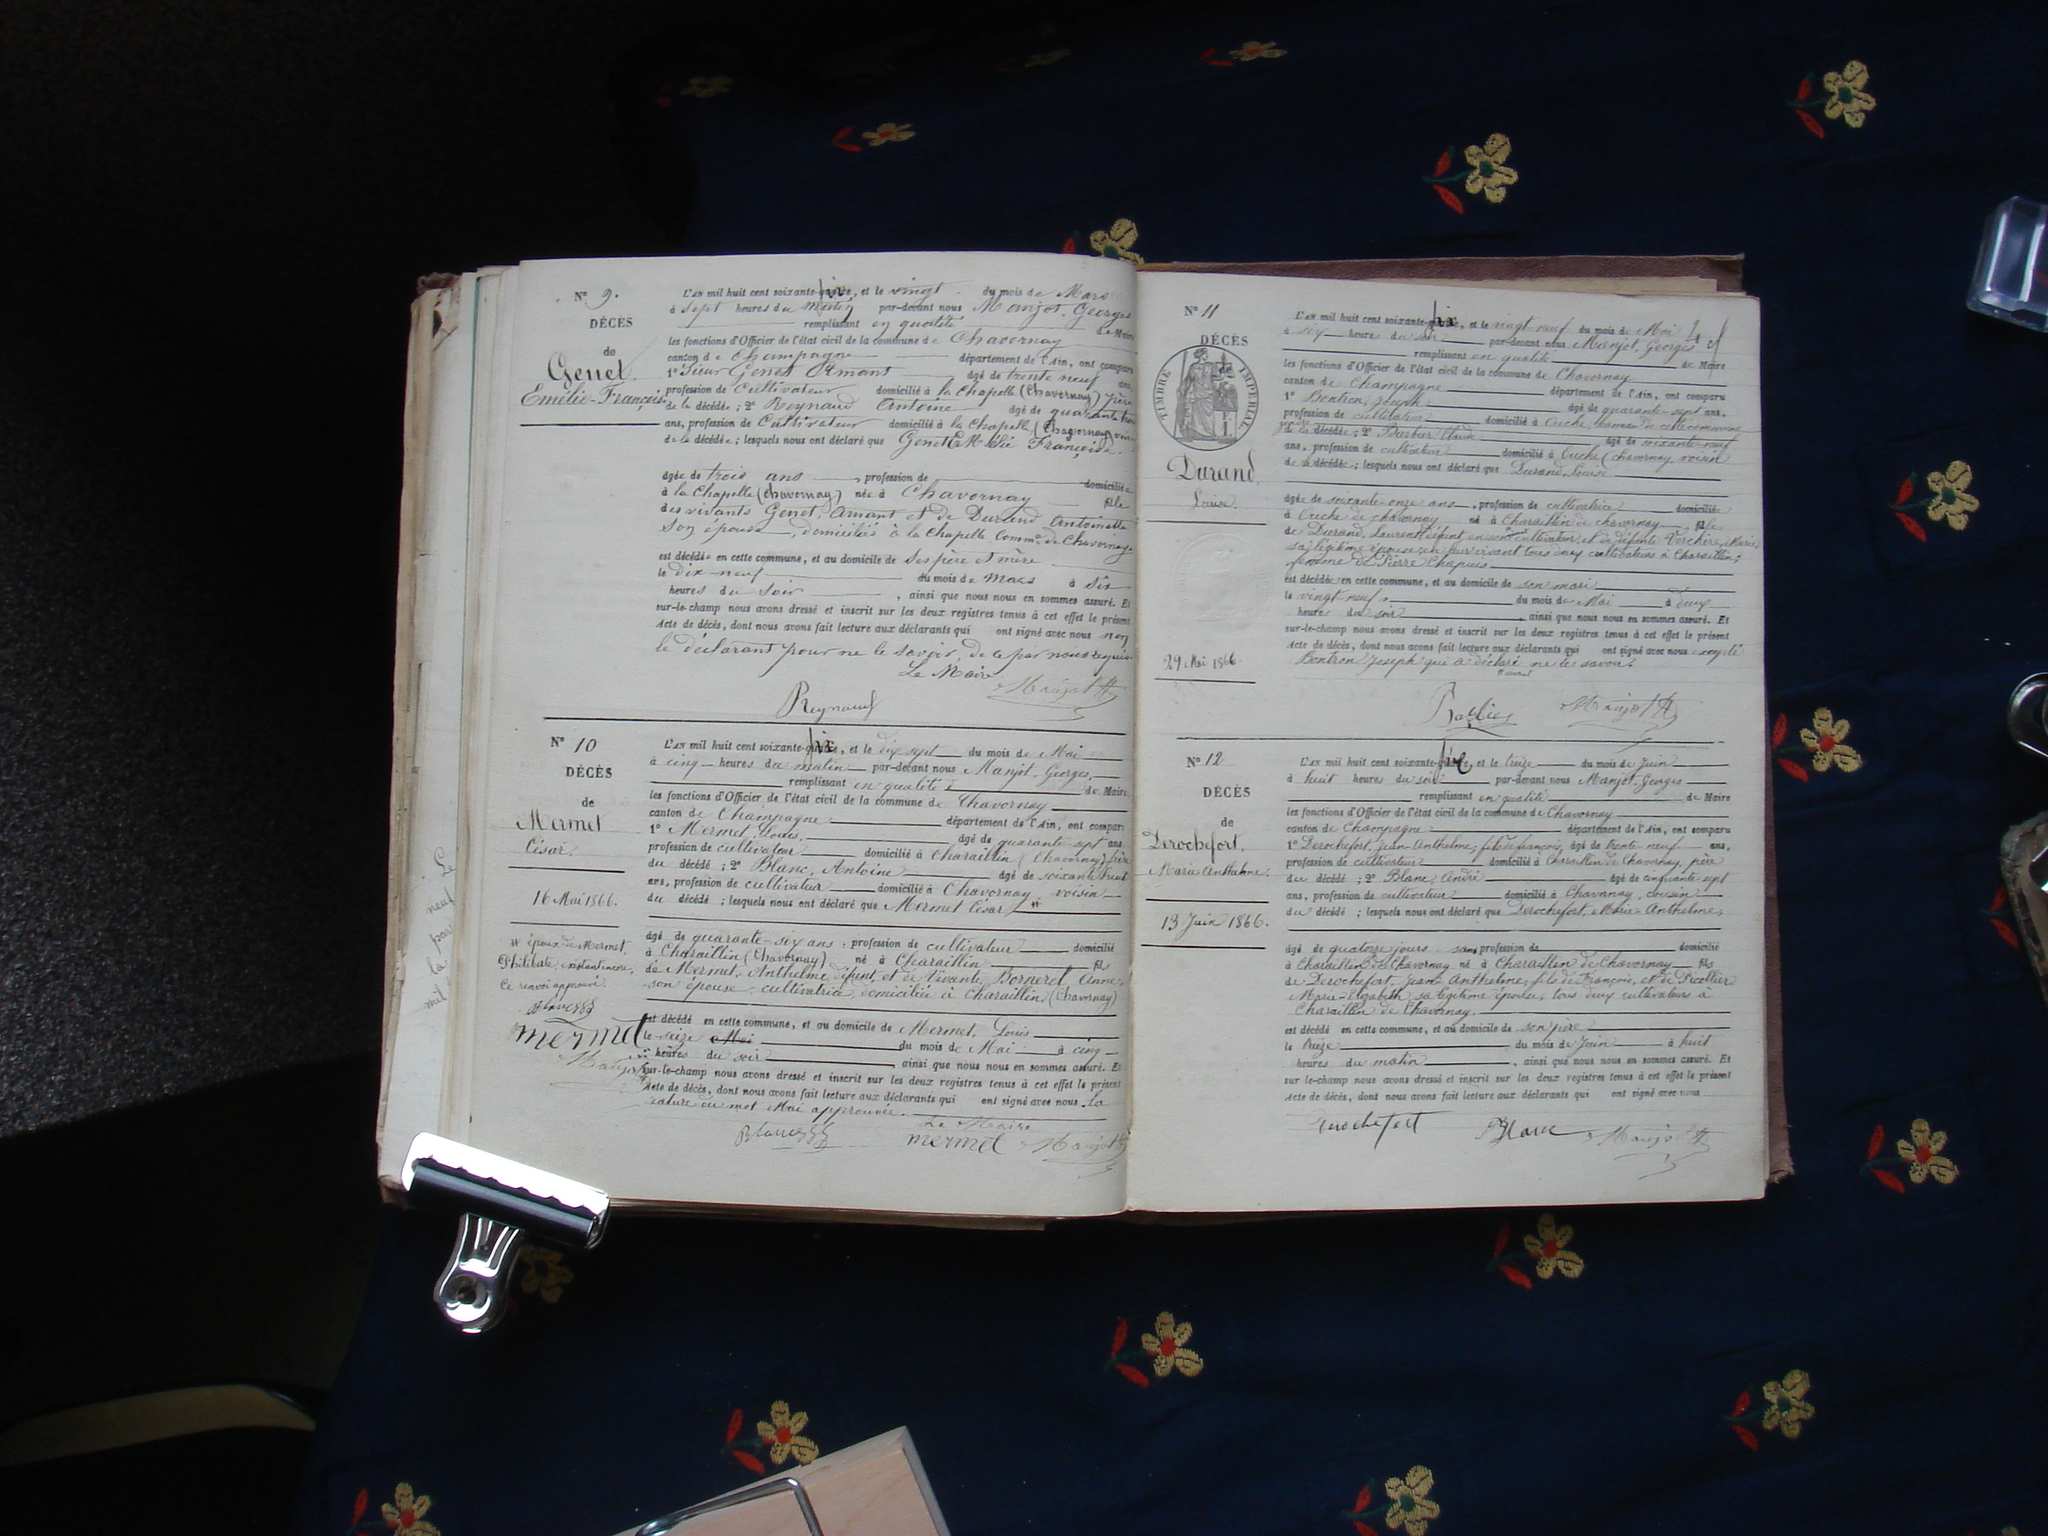 N° 9.
DÉCÈS
de
Genet
Emélie-Françoise
L'AN mil huit cent soixante-six, et le vingt du mois de Mars
à sept heures du matin par-devant nous Manjot, Georges
remplissant en qualité de Maire
les fonctions d'Officier de l'état civil de la commune de Chavornay
canton de Champagne département de l'Ain, ont comparu
1° Sieur Genet Amant âgé de trente neuf ans,
profession de cultivateur domicilié à la Chapelle (Chavornay) père
de la décédée ; 2° Reynaud Antoine âgé de quarante
ans, profession de Cultivateur domicilié à la Chapelle (Chavornay)
de la décédée ; lesquels nous ont déclaré que Genet Emélie Françoise.
âgée de trois ans, profession de domiciliée
à la Chapelle (Chavornay) née à Chavornay fille
des vivants Genet, Amant et de Durand Antoinette
son épouse, domiciliés à la Chapelle Comm. de Chavornay
est décédée en cette commune, et au domicile de ses père et mère
le dix neuf du mois de Mars à six
heures du soir, ainsi que nous nous en sommes assuré. Et
sur-le-champ nous avons dressé et inscrit sur les deux registres tenus à cet effet le présent
Acte de décès, dont nous avons fait lecture aux déclarants qui ont signé avec nous non
le déclarant pour ne le savoir, de ce par nous requis
Le Maire
Reynaud Manjot
N° 10
DÉCÈS
de
Mermet
César.
16 Mai 1866.
époux de Mermet
Philiberte,
Ce renvoi approuvé.
mermet
Manjot
L'AN mil huit cent soixante-six, et le dix sept du mois de Mai
à cinq heures du matin par-devant nous Manjot, Georges,
remplissant en qualité de Maire
les fonctions d'Officier de l'état civil de la commune de Chavornay
canton de Champagne département de l'Ain, ont comparu
1° Mermet, Louis, âgé de quarante-sept ans,
profession de cultivateur domicilié à Charaillin (Chavornay) frère
du décédé ; 2° Blanc, Antoine âgé de soixante huit
ans, profession de cultivateur domicilié à Chavornay voisin
du décédé ; lesquels nous ont déclaré que Mermet César
âgé de quarante-six ans, profession de cultivateur domicilié
à Charaillin (Chavornay) né à Charaillin fils
de Mermet, Anthelme défunt, et de vivante, Borneret Anne,
son épouse, cultivatrice domiciliée à Charaillin (Chavornay)
est décédé en cette commune, et au domicile de Mermet, Louis
le seize Mai du mois de Mai à cinq
heures du soir, ainsi que nous nous en sommes assuré. Et
sur-le-champ nous avons dressé et inscrit sur les deux registres tenus à cet effet le présent
Acte de décès, dont nous avons fait lecture aux déclarants qui ont signé avec nous. la
rature du mot Mai approuvée.
Le Maire
Blanc mermet Manjot
N° 11
DÉCÈS
de
TIMBRE IMPÉRIAL
Durand,
Louise.
29 Mai 1866.
L'AN mil huit cent soixante-six, et le vingt neuf du mois de Mai
à six heure du soir par-devant nous Manjot, Georges
remplissant en qualité de Maire
les fonctions d'Officier de l'état civil de la commune de Chavornay
canton de Champagne département de l'Ain, ont comparu
1° Bontron, Joseph âgé de quarante-sept ans,
profession de cultivateur domicilié à Ouche, hameau de cette commune
de la décédée ; 2° Barbier Claude âgé de soixante-neuf
ans, profession de cultivateur domicilié à Ouche (Chavornay voisin
de la décédée ; lesquels nous ont déclaré que Durand, Louise
âgée de soixante-onze ans, profession de cultivatrice domiciliée
à Ouche de Chavornay né à Charaillin de Chavornay fille
de Durand, Laurent défunt en son vivant cultivateur, et de défunte Verchère, Marie,
sa légitime épouse en leur vivant tous deux cultivateurs à Charaillin;
femme de Pierre Chapuis
est décédée en cette commune, et au domicile de son mari
le vingt neuf du mois de Mai à deux
heure du soir, ainsi que nous nous en sommes assuré. Et
sur-le-champ nous avons dressé et inscrit sur les deux registres tenus à cet effet le présent
Acte de décès, dont nous avons fait lecture aux déclarants qui ont signé avec nous excepté
Bontron Joseph qui a déclaré ne le savoir.
Manjot
N° 12
DÉCÈS
de
Derochefort,
Marie Anthelme.
13 Juin 1866.
L'AN mil huit cent soixante-six, et le treize du mois de Juin
à huit heures du soir par-devant nous Manjot, Georges
remplissant en qualité de Maire
les fonctions d'Officier de l'état civil de la commune de Chavornay
canton de Champagne département de l'Ain, ont comparu
1° Derochefort, Jean Anthelme, fils de François, âgé de trente neuf ans,
profession de cultivateur domicilié à Charaillin de Chavornay, père
du décédé ; 2° Blanc, André âgé de cinquante-sept
ans, profession de cultivateur domicilié à Chavornay, voisin
du décédé ; lesquels nous ont déclaré que Derochefort, Marie Anthelme,
âgé de quatorze jours sans profession de domicilié
à Charaillin de Chavornay né à Charaillin de Chavornay fils
de Derochefort, Jean Anthelme, fils de François, et de
Marie-Elizabeth sa légitime épouse, tous deux cultivateurs à
Charaillin de Chavornay.
est décédé en cette commune, et au domicile de son père
le treize du mois de Juin à huit
heures du matin, ainsi que nous nous en sommes assuré. Et
sur-le-champ nous avons dressé et inscrit sur les deux registres tenus à cet effet le présent
Acte de décès, dont nous avons fait lecture aux déclarants qui ont signé avec nous
Derochefort Blanc Manjot